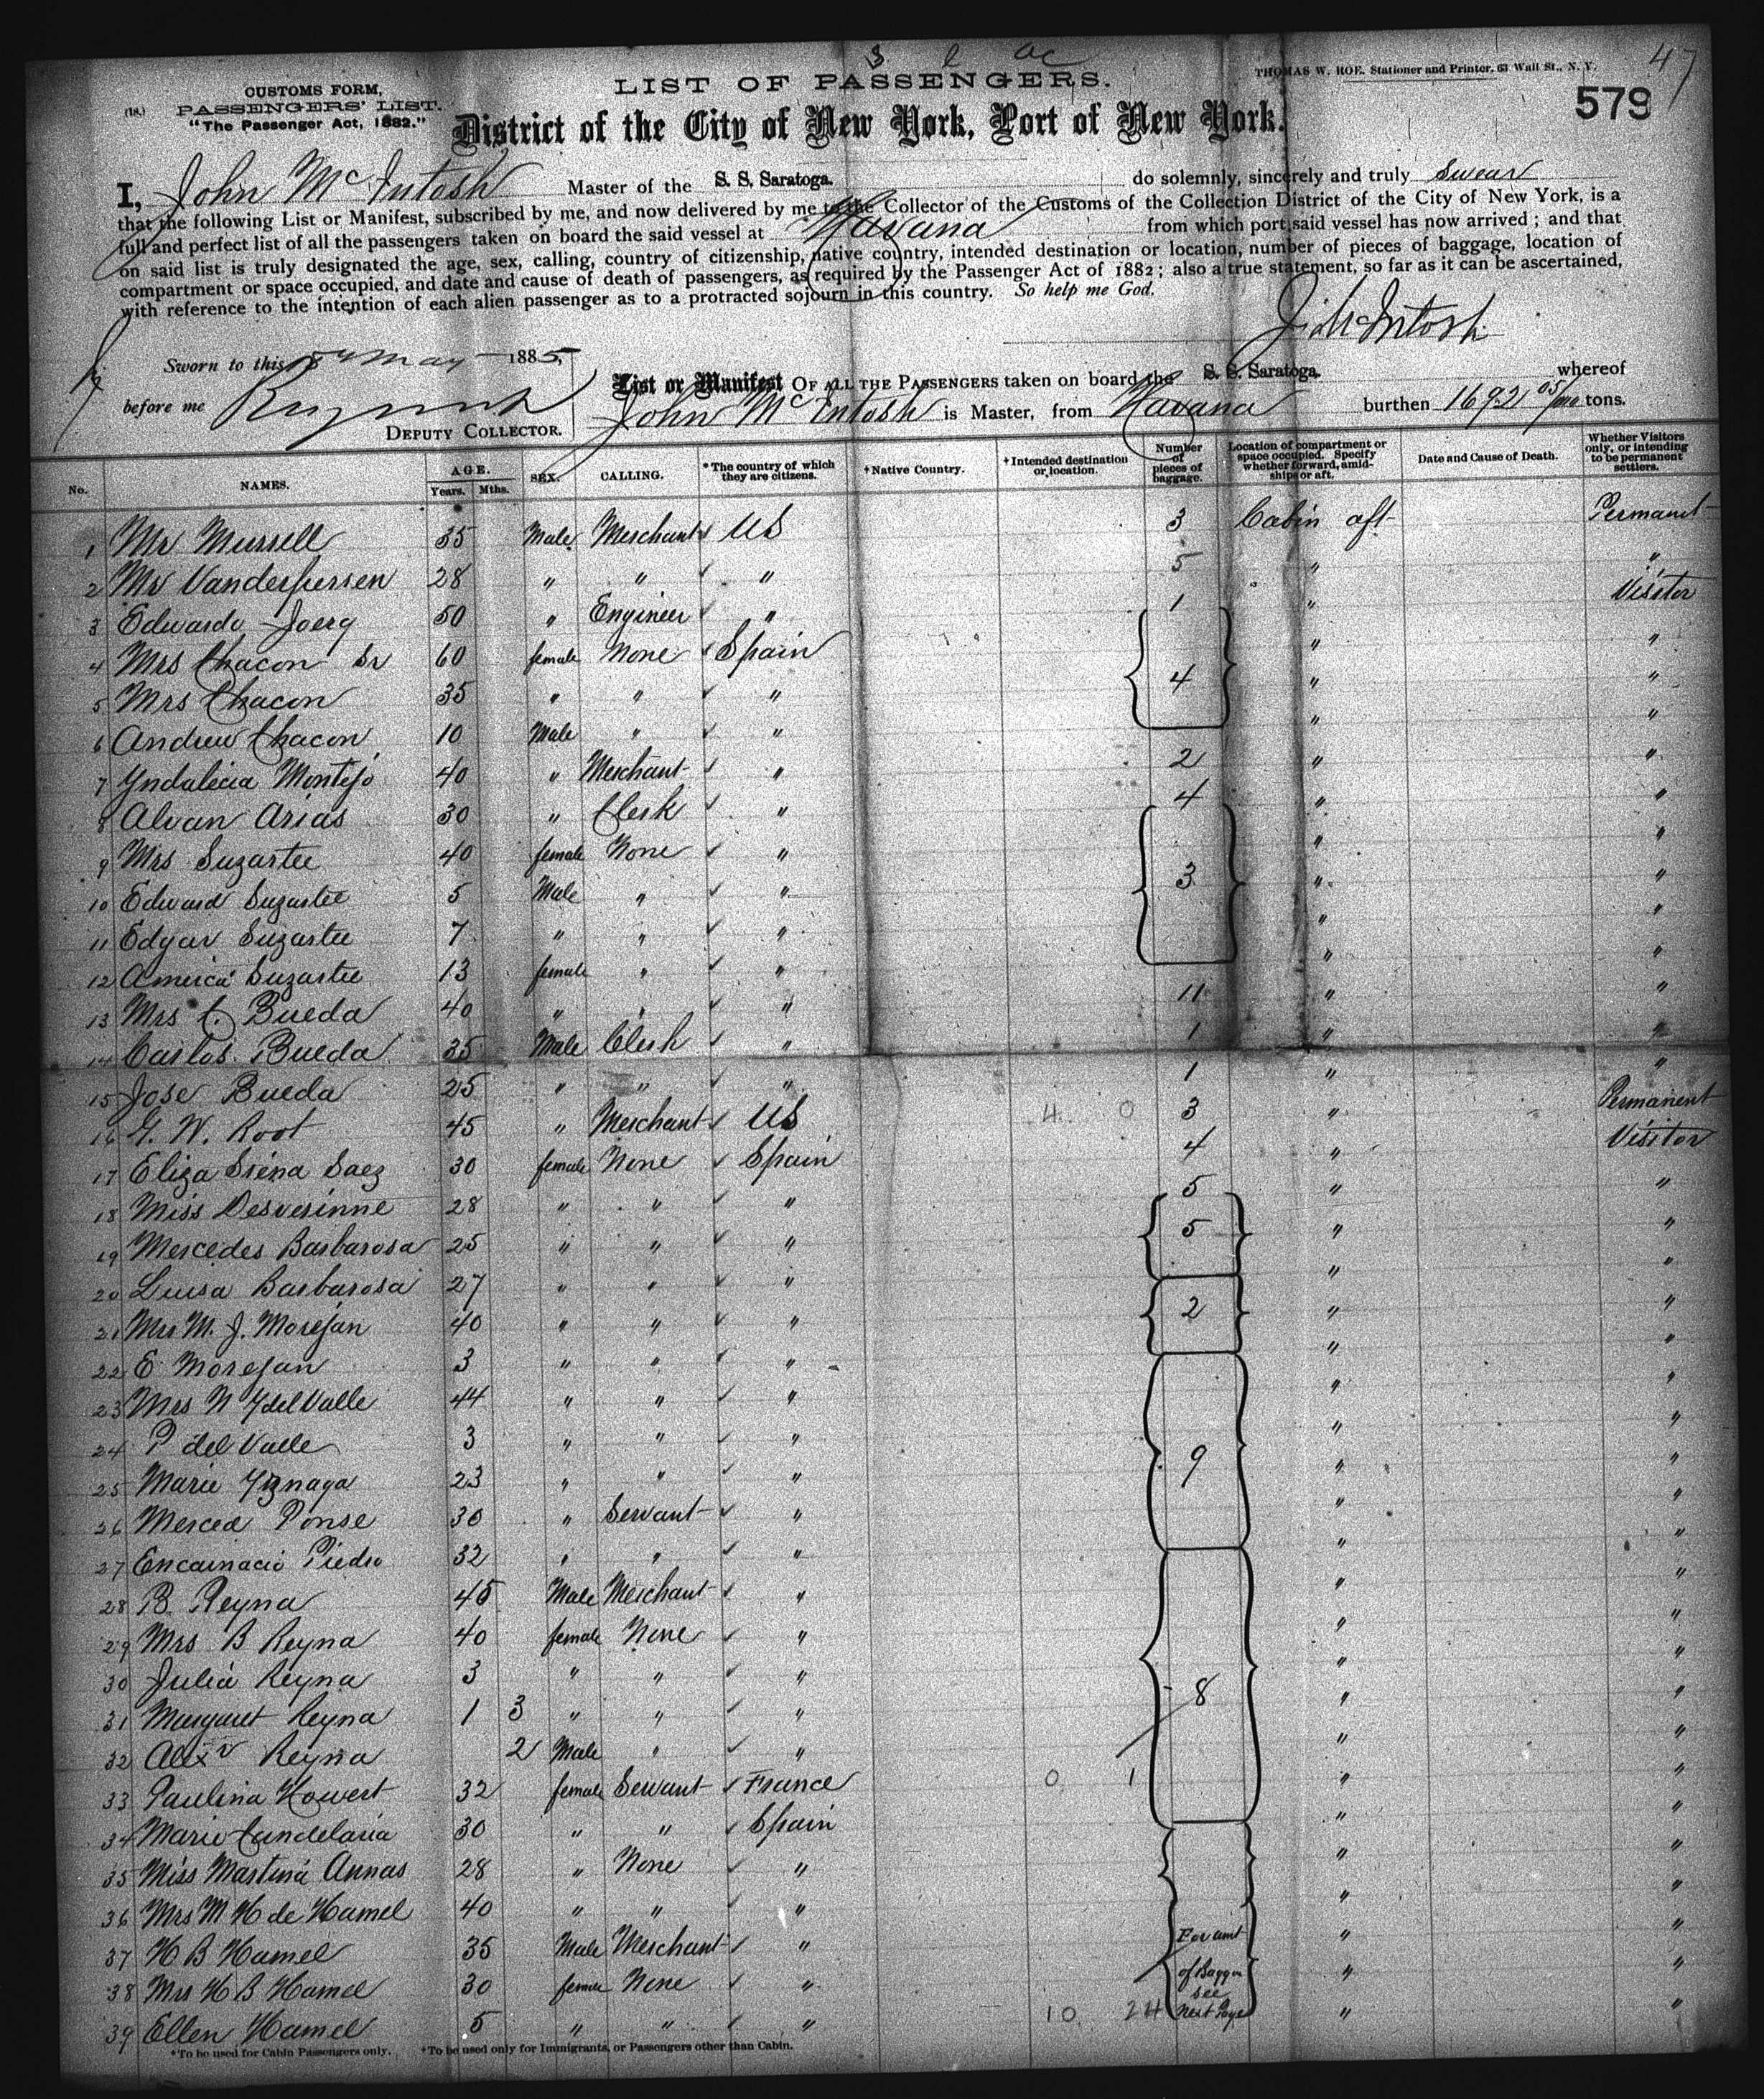 47
THOMAS W. ROE. Stationer and Printer, 63 Wall St., N. Y.
579
CUSTOMS FORM,
(18.) PASSENGERS' LIST.
"The Passenger Act, 1882."
LIST OF PASSENGERS.
District of the City of New York, Port of New York.
I, John McIntosh Master of the S. S. Saratoga. do solemnly, sincerely and truly swear
that the following List or Manifest, subscribed by me, and now delivered by me to the Collector of the Customs of the Collection District of the City of New York, is a
full and perfect list of all the passengers taken on board the said vessel at Havana from which port said vessel has now arrived; and that
on said list is truly designated the age, sex, calling, country of citizenship, native country, intended destination or location, number of pieces of baggage, location of
compartment or space occupied, and date and cause of death of passengers, as required by the Passenger Act of 1882; also a true statement, so far as it can be ascertained,
with reference to the intention of each alien passenger as to a protracted sojourn in this country. So help me God.
J. McIntosh
Sworn to this May 1885
before me
DEPUTY COLLECTOR.
List or Manifest OF ALL THE PASSENGERS taken on board the S. S. Saratoga. whereof
John McIntosh is Master, from Havana burthen 1692 05/100 tons.
No. NAMES. AGE. Years. Mths. SEX. CALLING. *The country of which they are citizens. †Native Country. †Intended destination or location. Number of pieces of baggage. Location of compartment or space occupied. Specify whether forward, amidships or aft. Date and Cause of Death. Whether Visitors only, or intending to be permanent settlers.
1 Mr Mursell 35 Male Merchant US 3 Cabin aft Permanent
2 Mr Vanderpursen 28 " " " 5 " "
3 Edwardo Joerg 50 " Engineer " 1 " Visitor
4 Mrs Chacon Sr 60 female None Spain " "
5 Mrs Chacon 35 " " " 4 " "
6 Andrew Chacon 10 Male " " " "
7 Yndalecia Montejo 40 " Merchant " 2 " "
8 Alvan Arias 30 " Clerk " 4 " "
9 Mrs Suzartee 40 female None " " "
10 Edward Suzartee 5 Male " " 3 " "
11 Edgar Suzartee 7 " " " " "
12 America Suzartee 13 female " " " "
13 Mrs C. Bueda 40 " " " 11 " "
14 Carlos Bueda 35 Male Clerk " 1 " "
15 Jose Bueda 25 " " " 1 " "
16 G. W. Root 45 " Merchant US 4 0 3 " Permanent
17 Eliza Siena Saez 30 female None Spain 4 " Visitor
18 Miss Desverinne 28 " " " 5 " "
19 Mercedes Barbarosa 25 " " " 5 " "
20 Luisa Barbarosa 27 " " " " "
21 Mrs M. J. Morejan 40 " " " 2 " "
22 E Morejan 3 " " " " "
23 Mrs N Y del Valle 44 " " " " "
24 P del Valle 3 " " " " "
25 Marie Yznaga 23 " " " 9 " "
26 Merced Ponse 30 " Servant " " "
27 Encarnacio Piedro 32 " " " " "
28 B. Reyna 45 Male Merchant " " "
29 Mrs B Reyna 40 female None " " "
30 Julia Reyna 3 " " " " "
31 Margaret Reyna 1 3 " " " 8 " "
32 Alexr Reyna 2 Male " " " "
33 Paulina Howert 32 female Servant France 0 1 " "
34 Marie Candelaria 30 " " Spain " "
35 Miss Martina Annas 28 " None " " "
36 Mrs M H de Hamel 40 " " " " "
37 H B Hamel 35 Male Merchant " For amt " "
38 Mrs H B Hamel 30 female None " of Bagge see " "
39 Ellen Hamel 5 " " " 10 24 Next Page " "
*To be used for Cabin Passengers only. †To be used only for Immigrants, or Passengers other than Cabin.